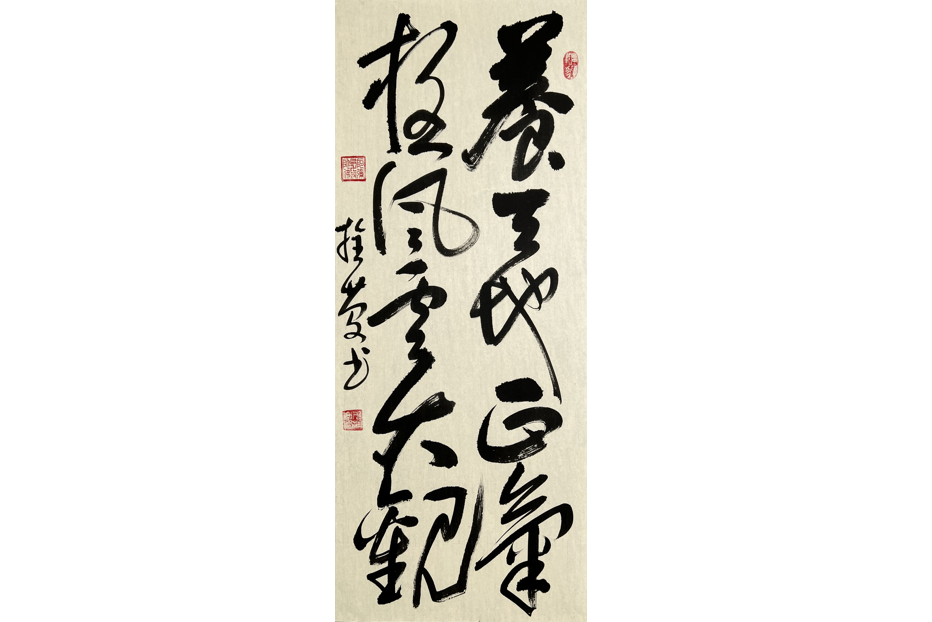 養天地正氣
極風雲大觀
书